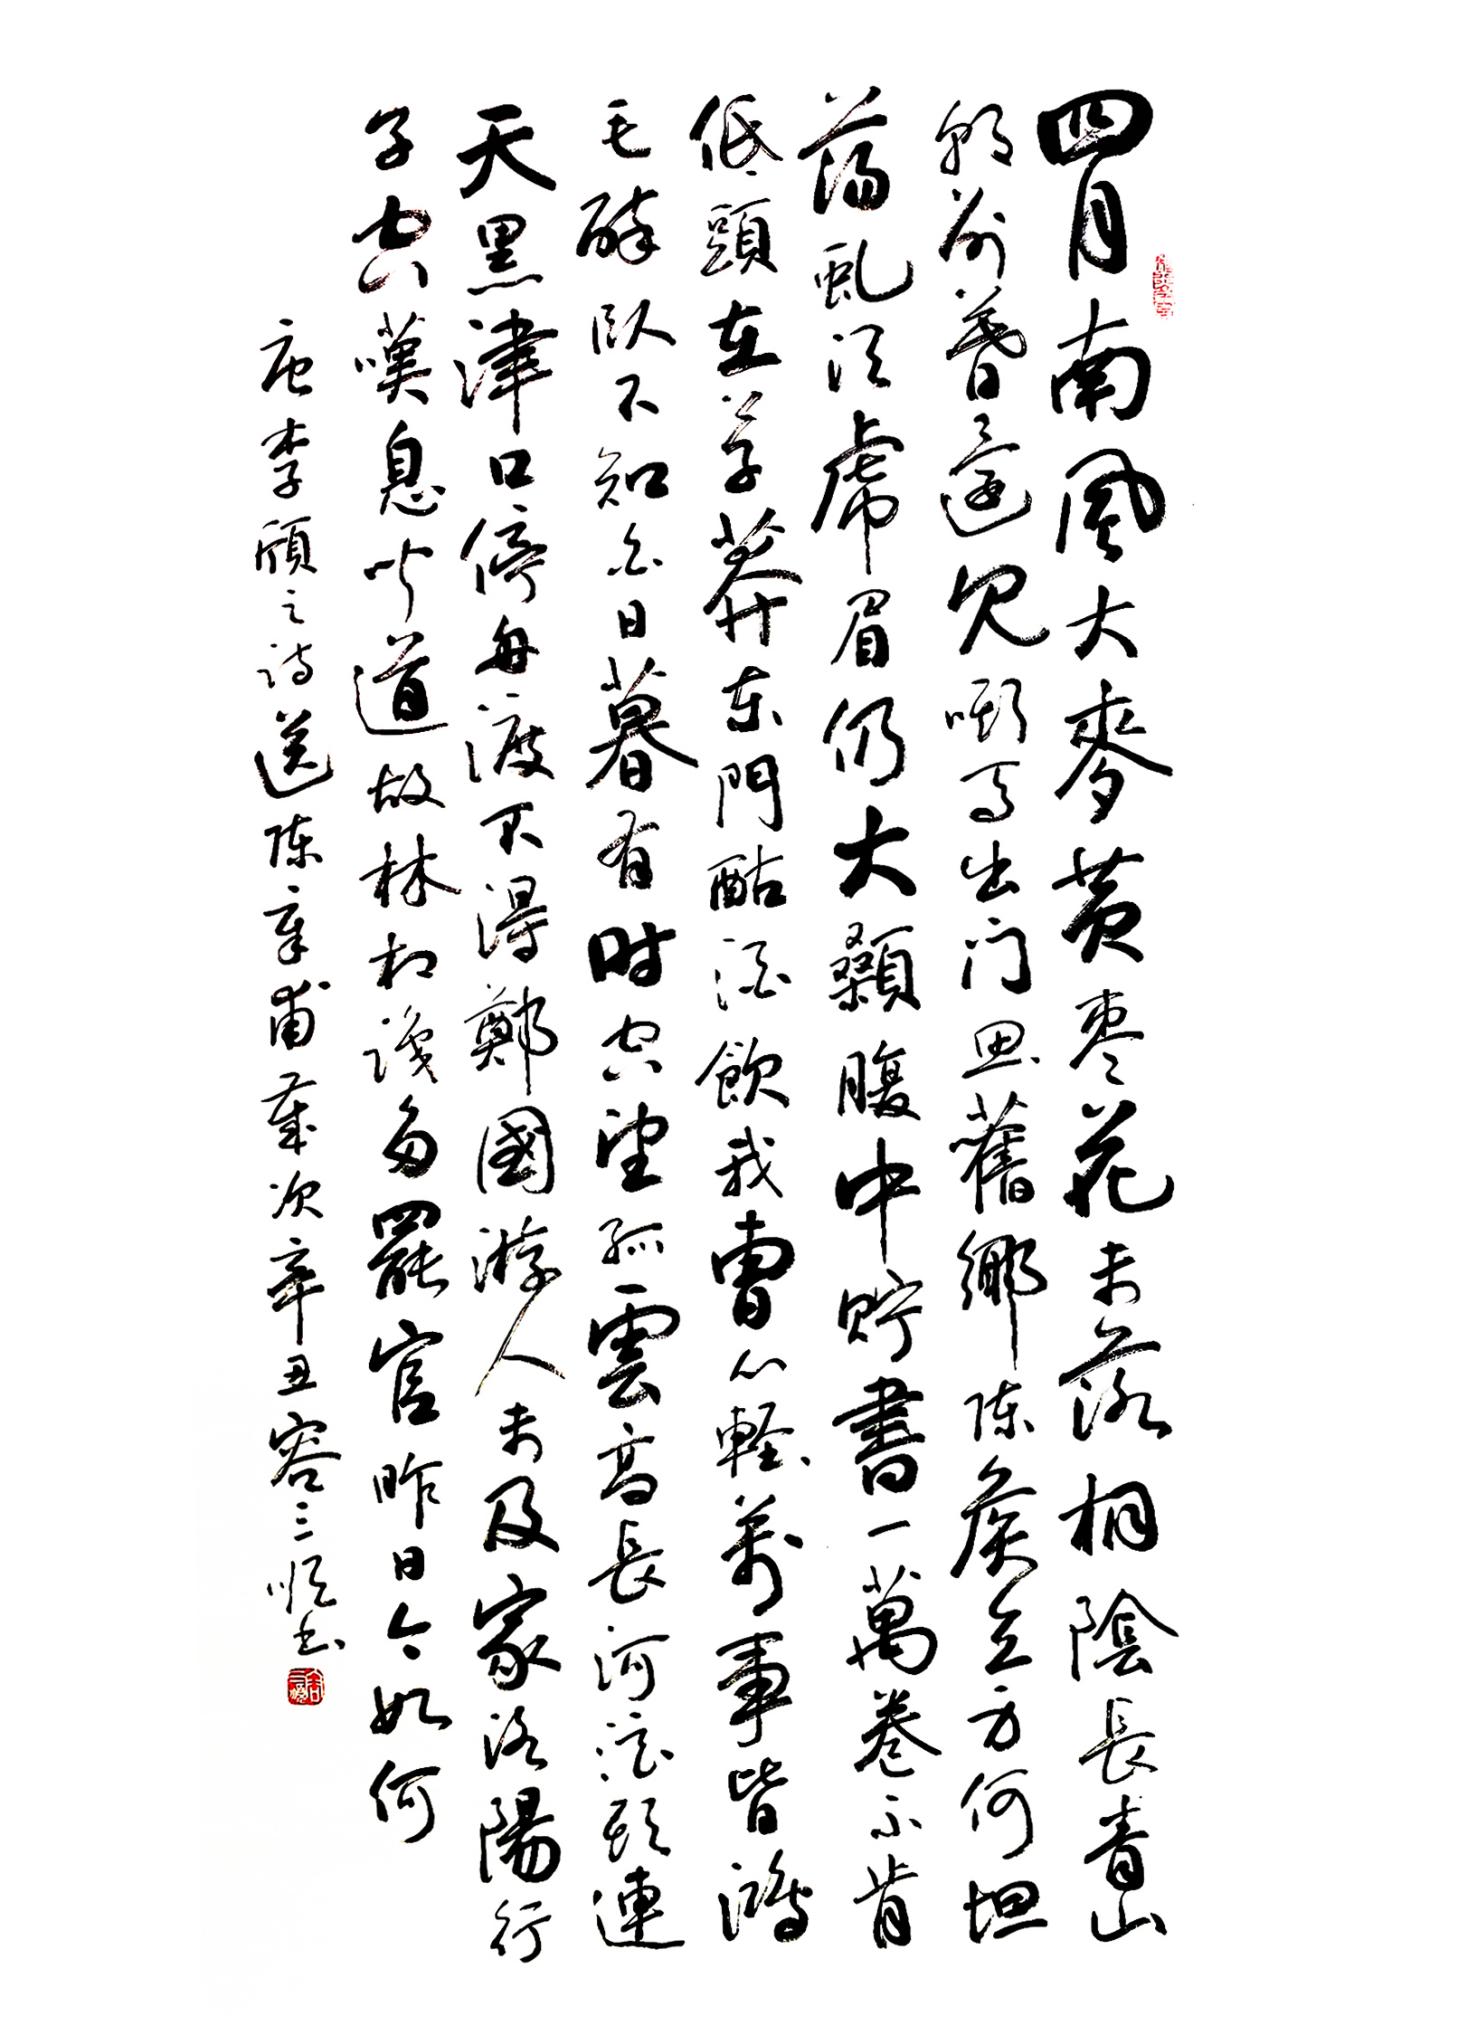 四月南風大麥黄枣花未落桐陰長青山
朝别暮還見嘶馬出门思舊鄉陈侯立身何坦
蕩虬须虎眉仍大顙腹中貯書一萬卷不肯
低頭在草莽東門酤酒飲我曹心輕萬事皆鴻
毛醉臥不知白日暮有时空望孤雲高長河浪頭連
天黑津口停舟渡不得鄭國游人未及家洛陽行
子空嘆息闻道故林相識多罷官昨日今如何
唐李頎之诗送陈章甫歲次辛丑容三順书